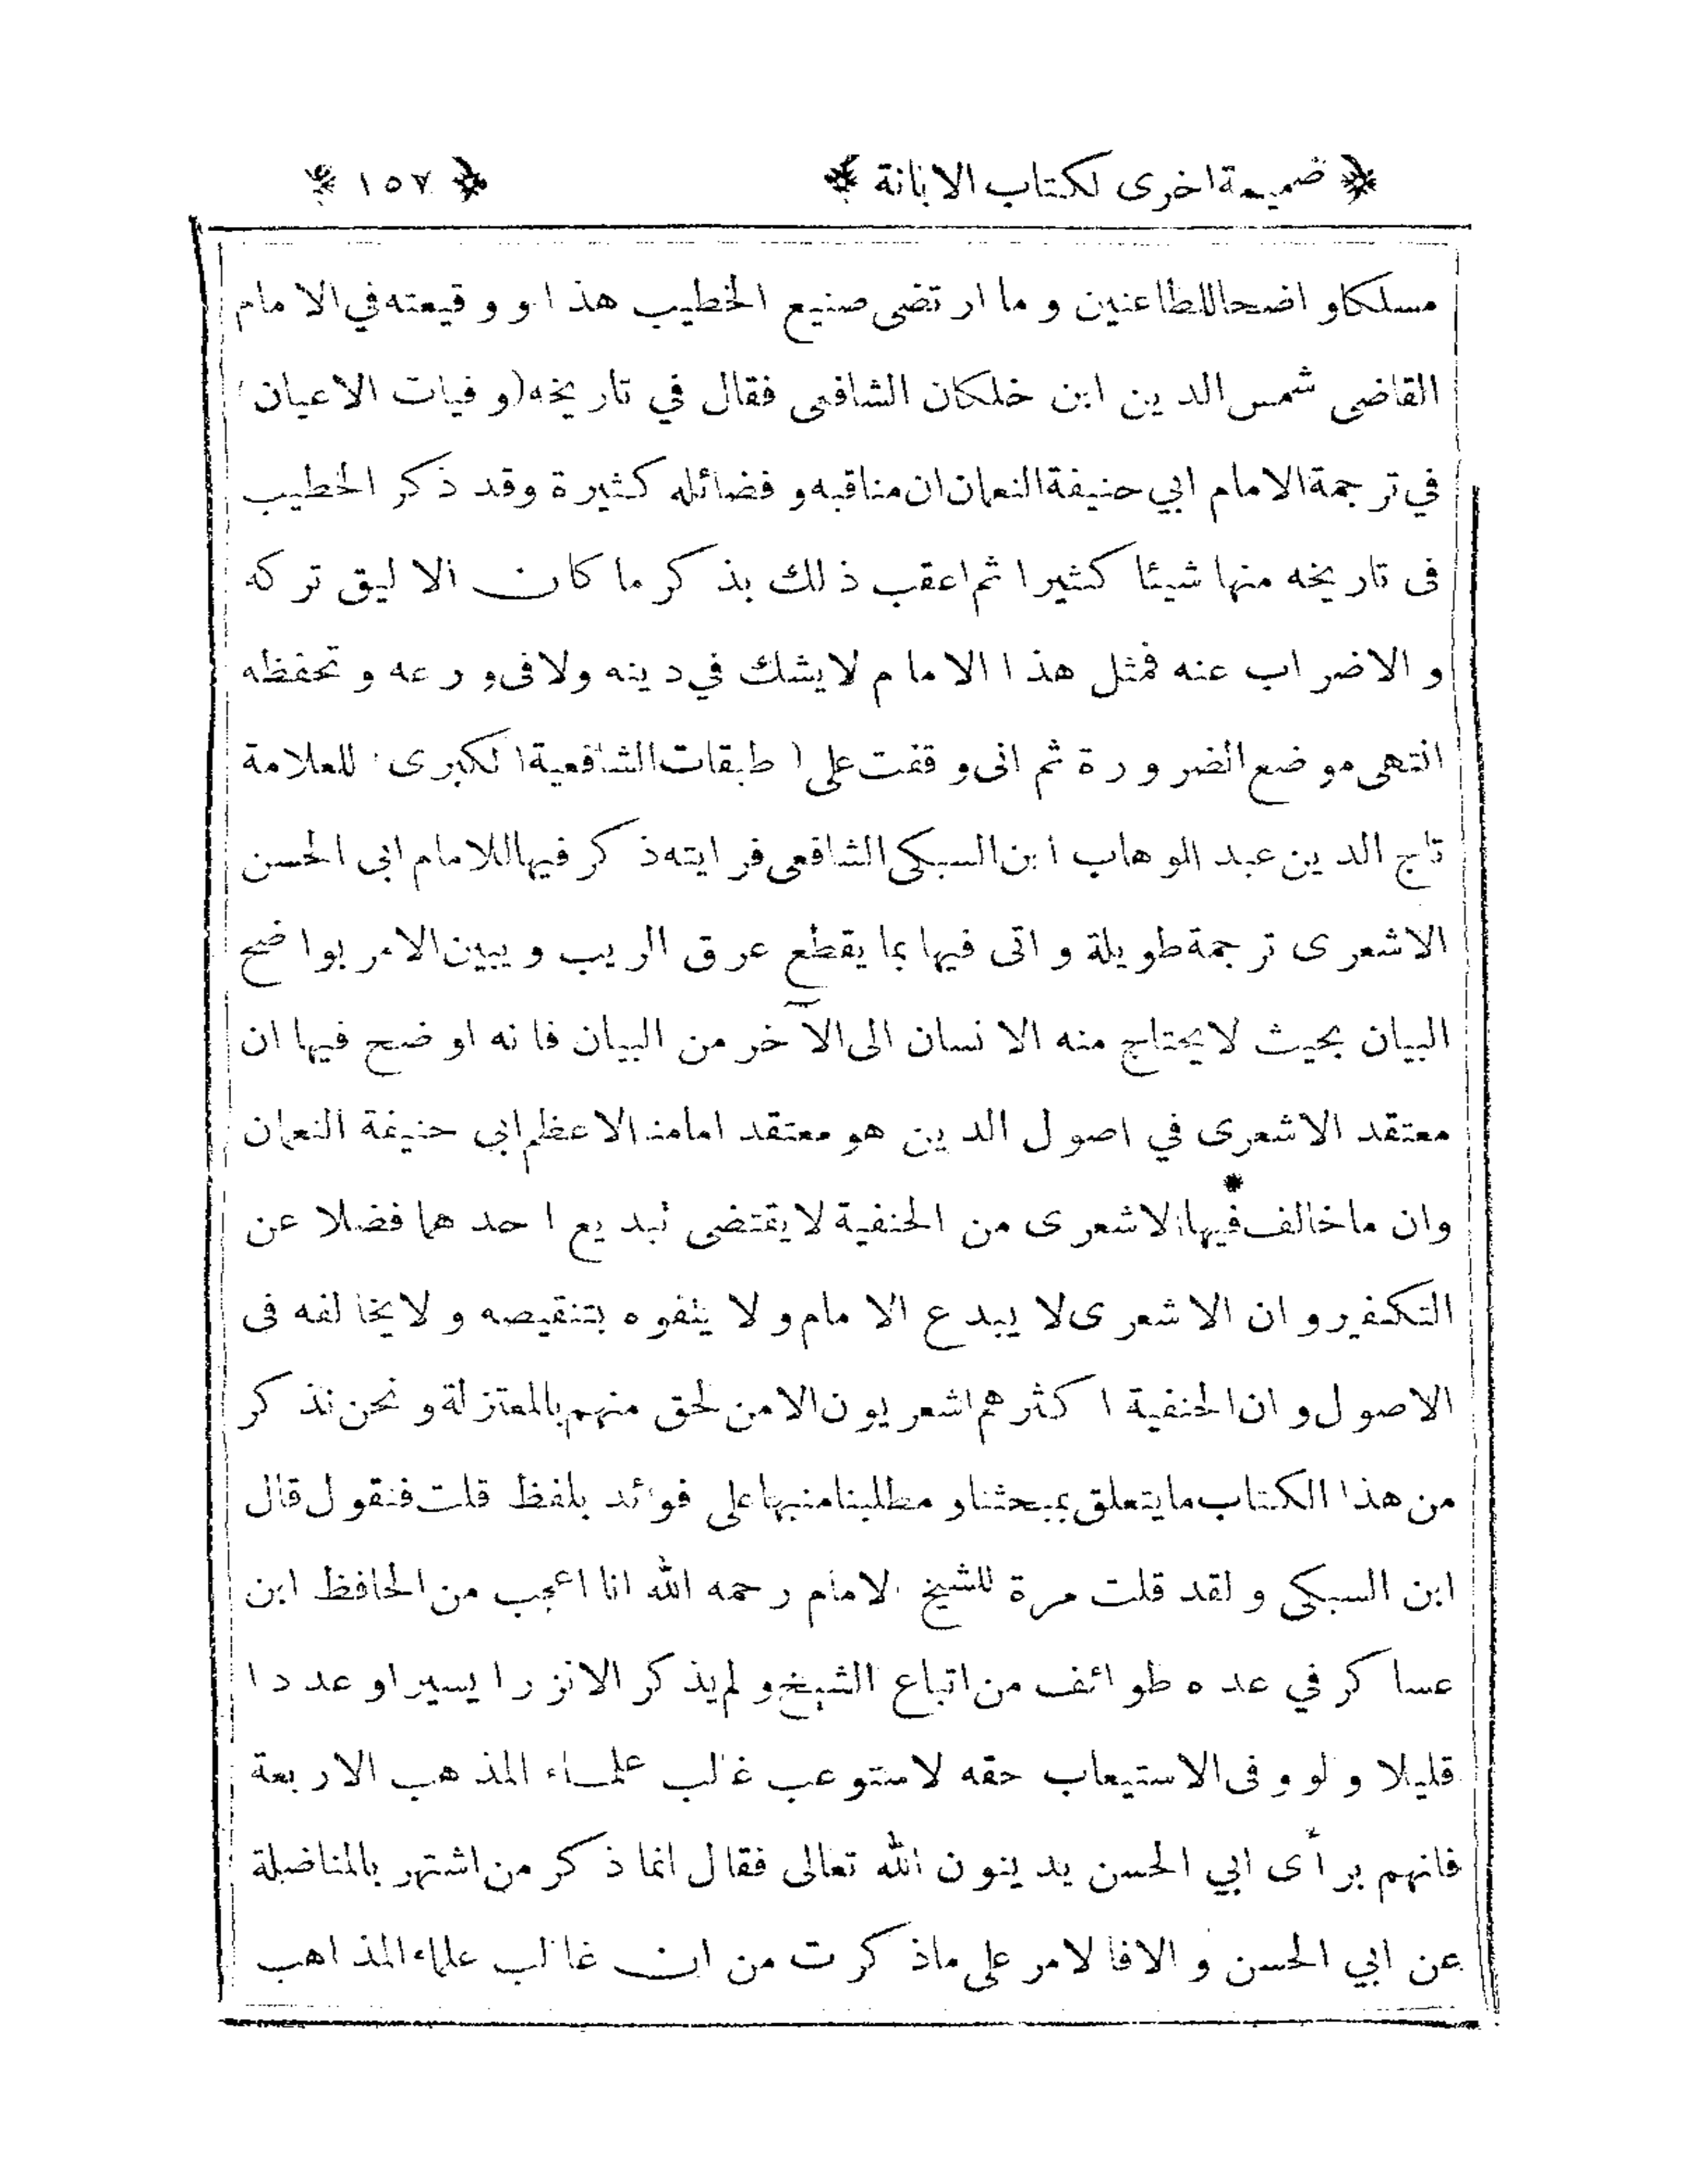 ضميمة اخرى لكتاب الابانة ١٥٧
مسلكا واضحا للطاعنين وما ارتضى صنيع الخطيب هذا و وقيعته في الامام
القاضى شمس الدين ابن خلكان الشافعى فقال في تاريخه (وفيات الاعيان)
في ترجمة الامام ابي حنيفة النعمان ان مناقبه و فضائله كثيرة وقد ذكر الخطيب
فى تاريخه منها شيئا كثيرا ثم اعقب ذلك بذكر ما كان الاليق تركه
و الاضراب عنه فمثل هذا الامام لايشك في دينه ولا فى ورعه و تحفظه
انتهى موضع الضرورة ثم انى وقفت على (طبقات الشافعية الكبرى) للعلامة
تاج الدين عبد الوهاب ابن السبكى الشافعى فرايته ذكر فيها للامام ابى الحسن
الاشعرى ترجمة طويلة و اتى فيها بما يقطع عرق الريب و يبين الامر بواضح
البيان بحيث لايحتاج منه الانسان الى الآخر من البيان فانه اوضح فيها ان
معتقد الاشعرى في اصول الدين هو معتقد امامنا الاعظم ابي حنيفة النعمان
وان ماخالف فيها الاشعرى من الحنفية لا يقتضى تبديع احدهما فضلا عن
التكفير و ان الاشعرى لا يبدع الامام و لا يتفوه بتنقيصه و لا يخالفه فى
الاصول و ان الحنفية اكثرهم اشعريون الا من لحق منهم بالمعتزلة و نحن نذكر
من هذا الكتاب ما يتعلق بمبحثنا و مطلبنا منبها على فوائد بلفظ قلت فنقول قال
ابن السبكى و لقد قلت مرة للشيخ الامام رحمه الله انا اعجب من الحافظ ابن
عساكر في عده طوائف من اتباع الشيخ و لم يذكر الا نزرا يسيرا و عددا
قليلا و لو وفى الاستيعاب حقه لاستوعب غالب علماء المذهب الاربعة
فانهم برأى ابي الحسن يدينون الله تعالى فقال انما ذكر من اشتهر بالمناضلة
عن ابي الحسن و الا فالامر على ماذكرت من ان غالب علماء المذاهب